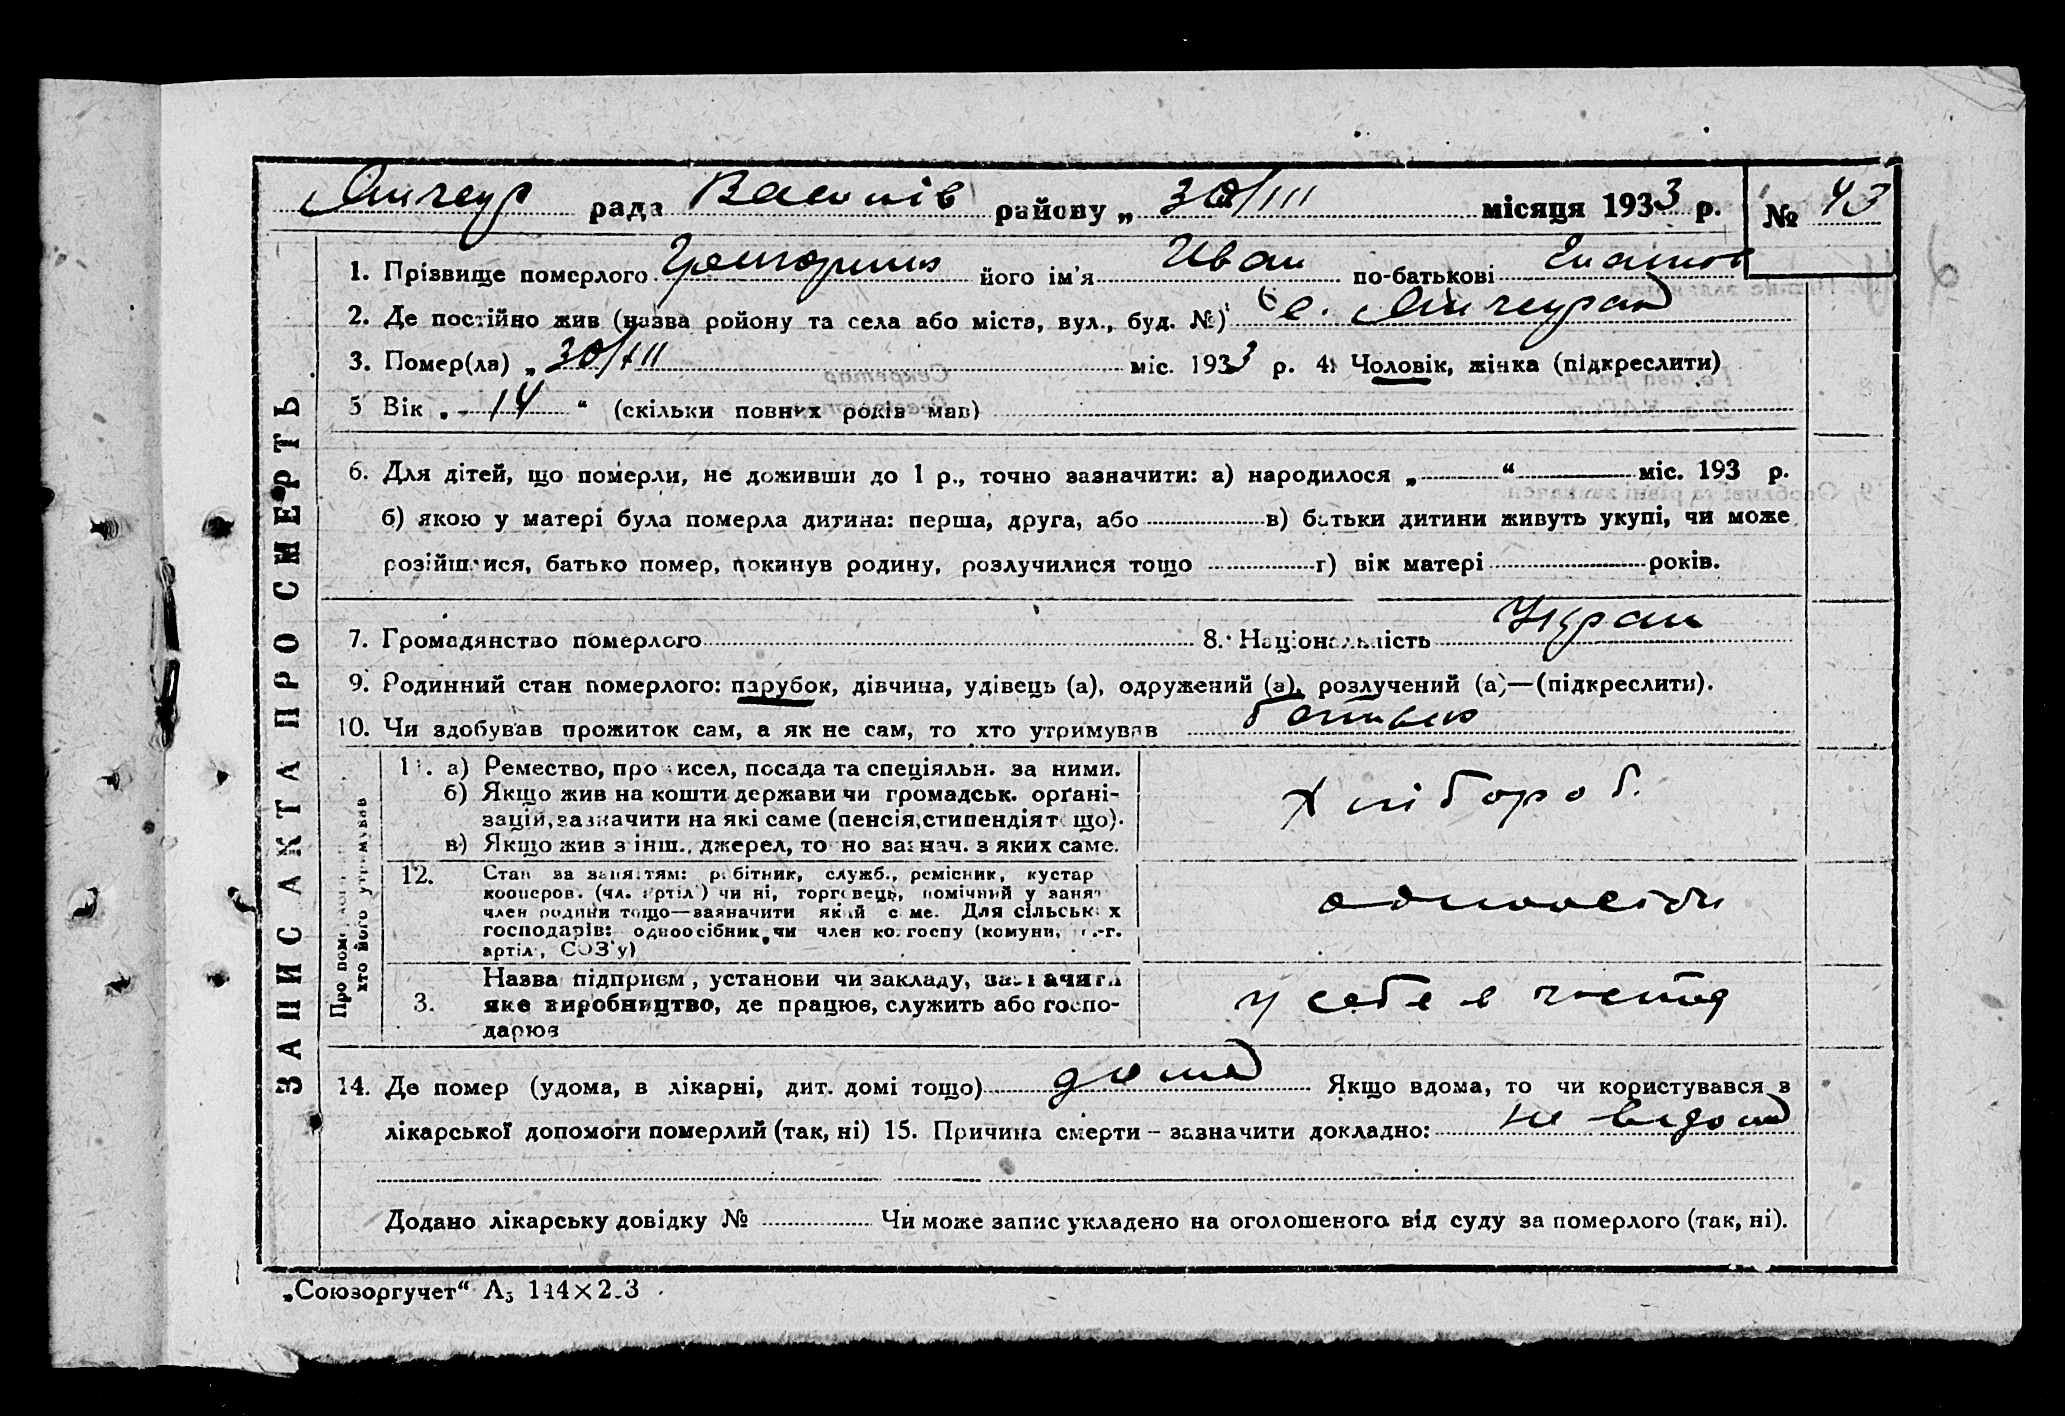 рада Васильків району „ 30/III місяця 1933 р. № 43
1. Прізвище померлого його ім'я Иван по-батькові
2. Де постійно жив (назва ройону та села або міста, вул., буд. №) с.
3. Помер(ла) „ 30/III міс. 1933 р. 4. Чоловік, жінка (підкреслити)
5 Вік „ 14 “ (скільки повних років мав)
6. Для дітей, що померли, не доживши до 1 р., точно зазначити: а) народилося „ “ міс. 193 р.
б) якою у матері була померла дитина: перша, друга, або в) батьки дитини живуть укупі, чи може
розійшлися, батько помер, покинув родину, розлучилися тощо г) вік матері років.
7. Громадянство померлого 8. Національність Украин
9. Родинний стан померлого: парубок, дівчина, удівець (а), одружений (а), розлучений (а)—(підкреслити).
10. Чи здобував прожиток сам, а як не сам, то хто утримував батько
ЗАПИС АКТА ПРО СМЕРТЬ
хто його утримував
11. а) Ремество, промисел, посада та спеціяльн. за ними.
б) Якщо жив на кошти держави чи громадськ. органі-
зацій, зазначити на які саме (пенсія, стипендія тощо).
в) Якщо жив з інш., джерел, точно зазнач. з яких саме.
хлібороб.
12. Стан за заняттям: робітник, служб., ремісник, кустар
кооперов. (чл. артілі) чи ні, торговець, помічний у занят
член родини тощо—зазначити який саме. Для сільських
господарів: одноосібник, чи член колгоспу (комуни, с.-г.
артілі, СОЗ'у)
одноосібн
3. Назва підприєм, установи чи закладу, зазначити
яке виробництво, де працює, служить або госпо-
дарює
у себе в господ
14. Де помер (удома, в лікарні, дит. домі тощо) дома Якщо вдома, то чи користувався з
лікарської допомоги померлий (так, ні) 15. Причина смерти – зазначити докладно: не відома
Додано лікарську довідку № Чи може запис укладено на оголошеного від суду за померлого (так, ні).
„Союзоргучет“ А₅